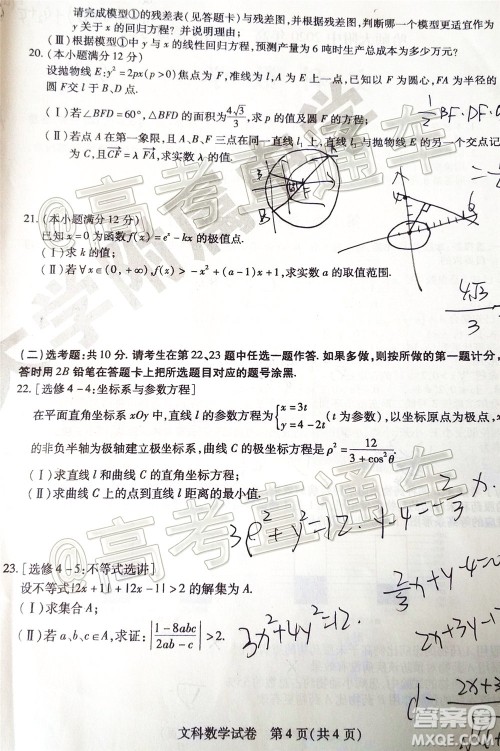 请完成模型①的残差表(见答题卡)与残差图,并根据残差图,判断哪一个模型更适宜作为
y关于x的回归方程?并说明理由;
(Ⅲ)根据模型①中y与x的线性回归方程,预测产量为6吨时生产总成本为多少万元?
20.(本小题满分12分)
设抛物线E:y²=2px(p>0)焦点为F,准线为l,A为E上一点,已知以F为圆心,FA为半径的
圆F交l于B、D点.
(Ⅰ)若∠BFD=60°,△BFD的面积为4√3/3,求p的值及圆F的方程;
(Ⅱ)若点A在第一象限,且A、B、F三点在同一直线l₁上,直线l₁与抛物线E的另一个交点记
为C,且CF=λFA,求实数λ的值.
21.(本小题满分12分)
已知x=0为函数f(x)=eˣ-kx的极值点.
(Ⅰ)求k的值;
(Ⅱ)若∀x∈(0,+∞),f(x)>-x²+(a-1)x+1,求实数a的取值范围.
4√3/3
(二)选考题:共10分.请考生在第22、23题中任选一题作答.如果多做,则按所做的第一题计分,
答时用2B铅笔在答题卡上把所选题目对应的题号涂黑.
22.[选修4-4:坐标系与参数方程]
在平面直角坐标系xOy中,直线l的参数方程为{x=3t y=4-2t(t为参数),以坐标原点为极点,x轴
的非负半轴为极轴建立极坐标系,曲线C的极坐标方程是ρ²=12/(3+cos²θ).
(Ⅰ)求直线l和曲线C的直角坐标方程;
(Ⅱ)求曲线C上的点到直线l距离的最小值.
3ρ²+y²=12.
23.[选修4-5:不等式选讲]
设不等式|2x+1|+|2x-1|>2的解集为A.
(Ⅰ)求集合A;
(Ⅱ)若a、b、c∈A,求证:|(1-8abc)/(2ab-c)|>2.
3x²+4y²=12.
@高考直通车
@高考直通车
文科数学试卷 第4页(共4页)
答案圈
MXQE.COM